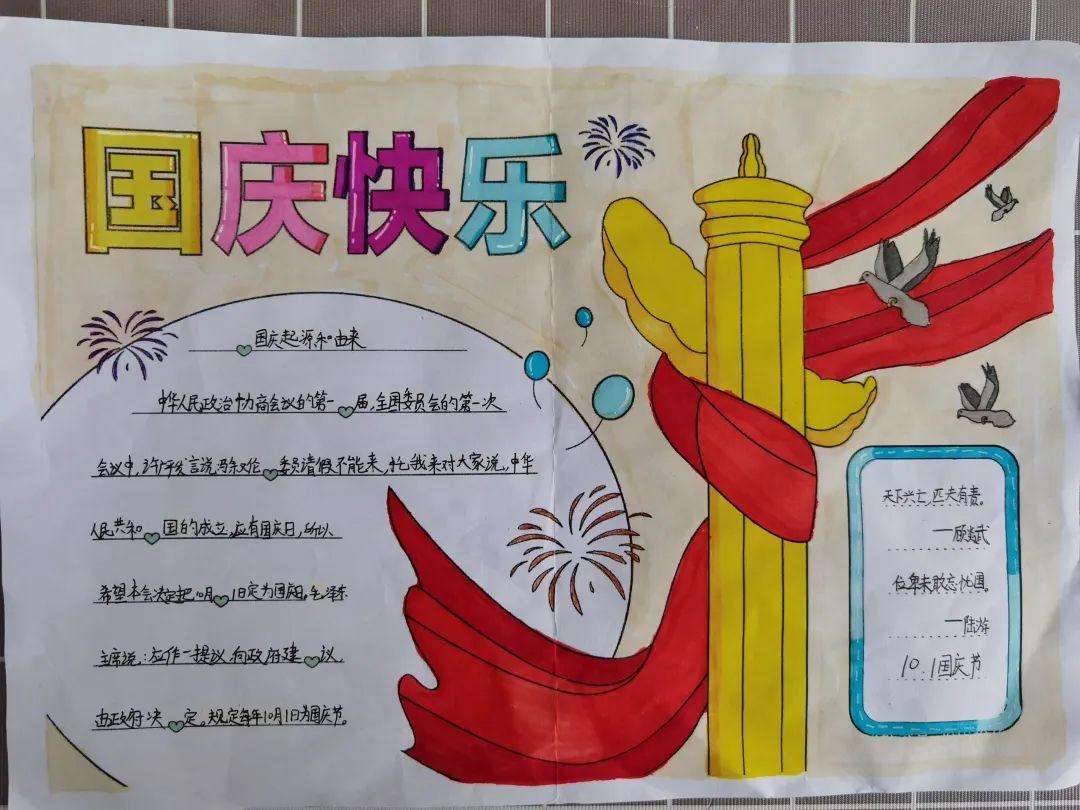 国庆快乐
国庆起源和由来
中华人民政治协商会议的第一届,全国委员会的第一次
会议中,许广平发言说,马叙伦委员请假不能来,托我来对大家说,中华
人民共和国的成立,应有国庆日,所以
希望本会决定把10月1日定为国庆日。毛泽东
主席说:应作一提议,向政府建议,
由政府决定。规定每年10月1日为国庆节。
天下兴亡,匹夫有责。
—顾炎武
位卑未敢忘忧国。
—陆游
10.1国庆节